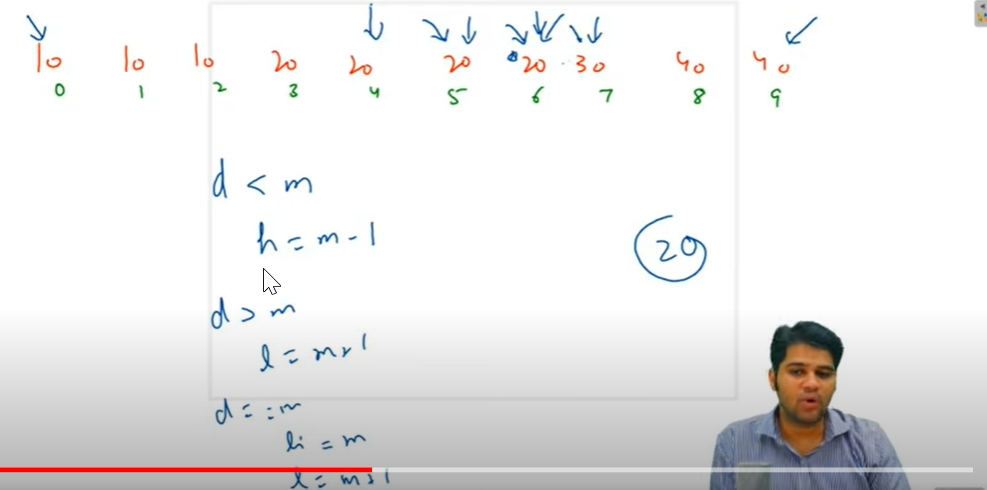 10 10 10 20 20 20 20 30 40 40
0 1 2 3 4 5 6 7 8 9
d < m
h = m - 1
20
d > m
l = m + 1
d = = m
li = m
l = m + 1